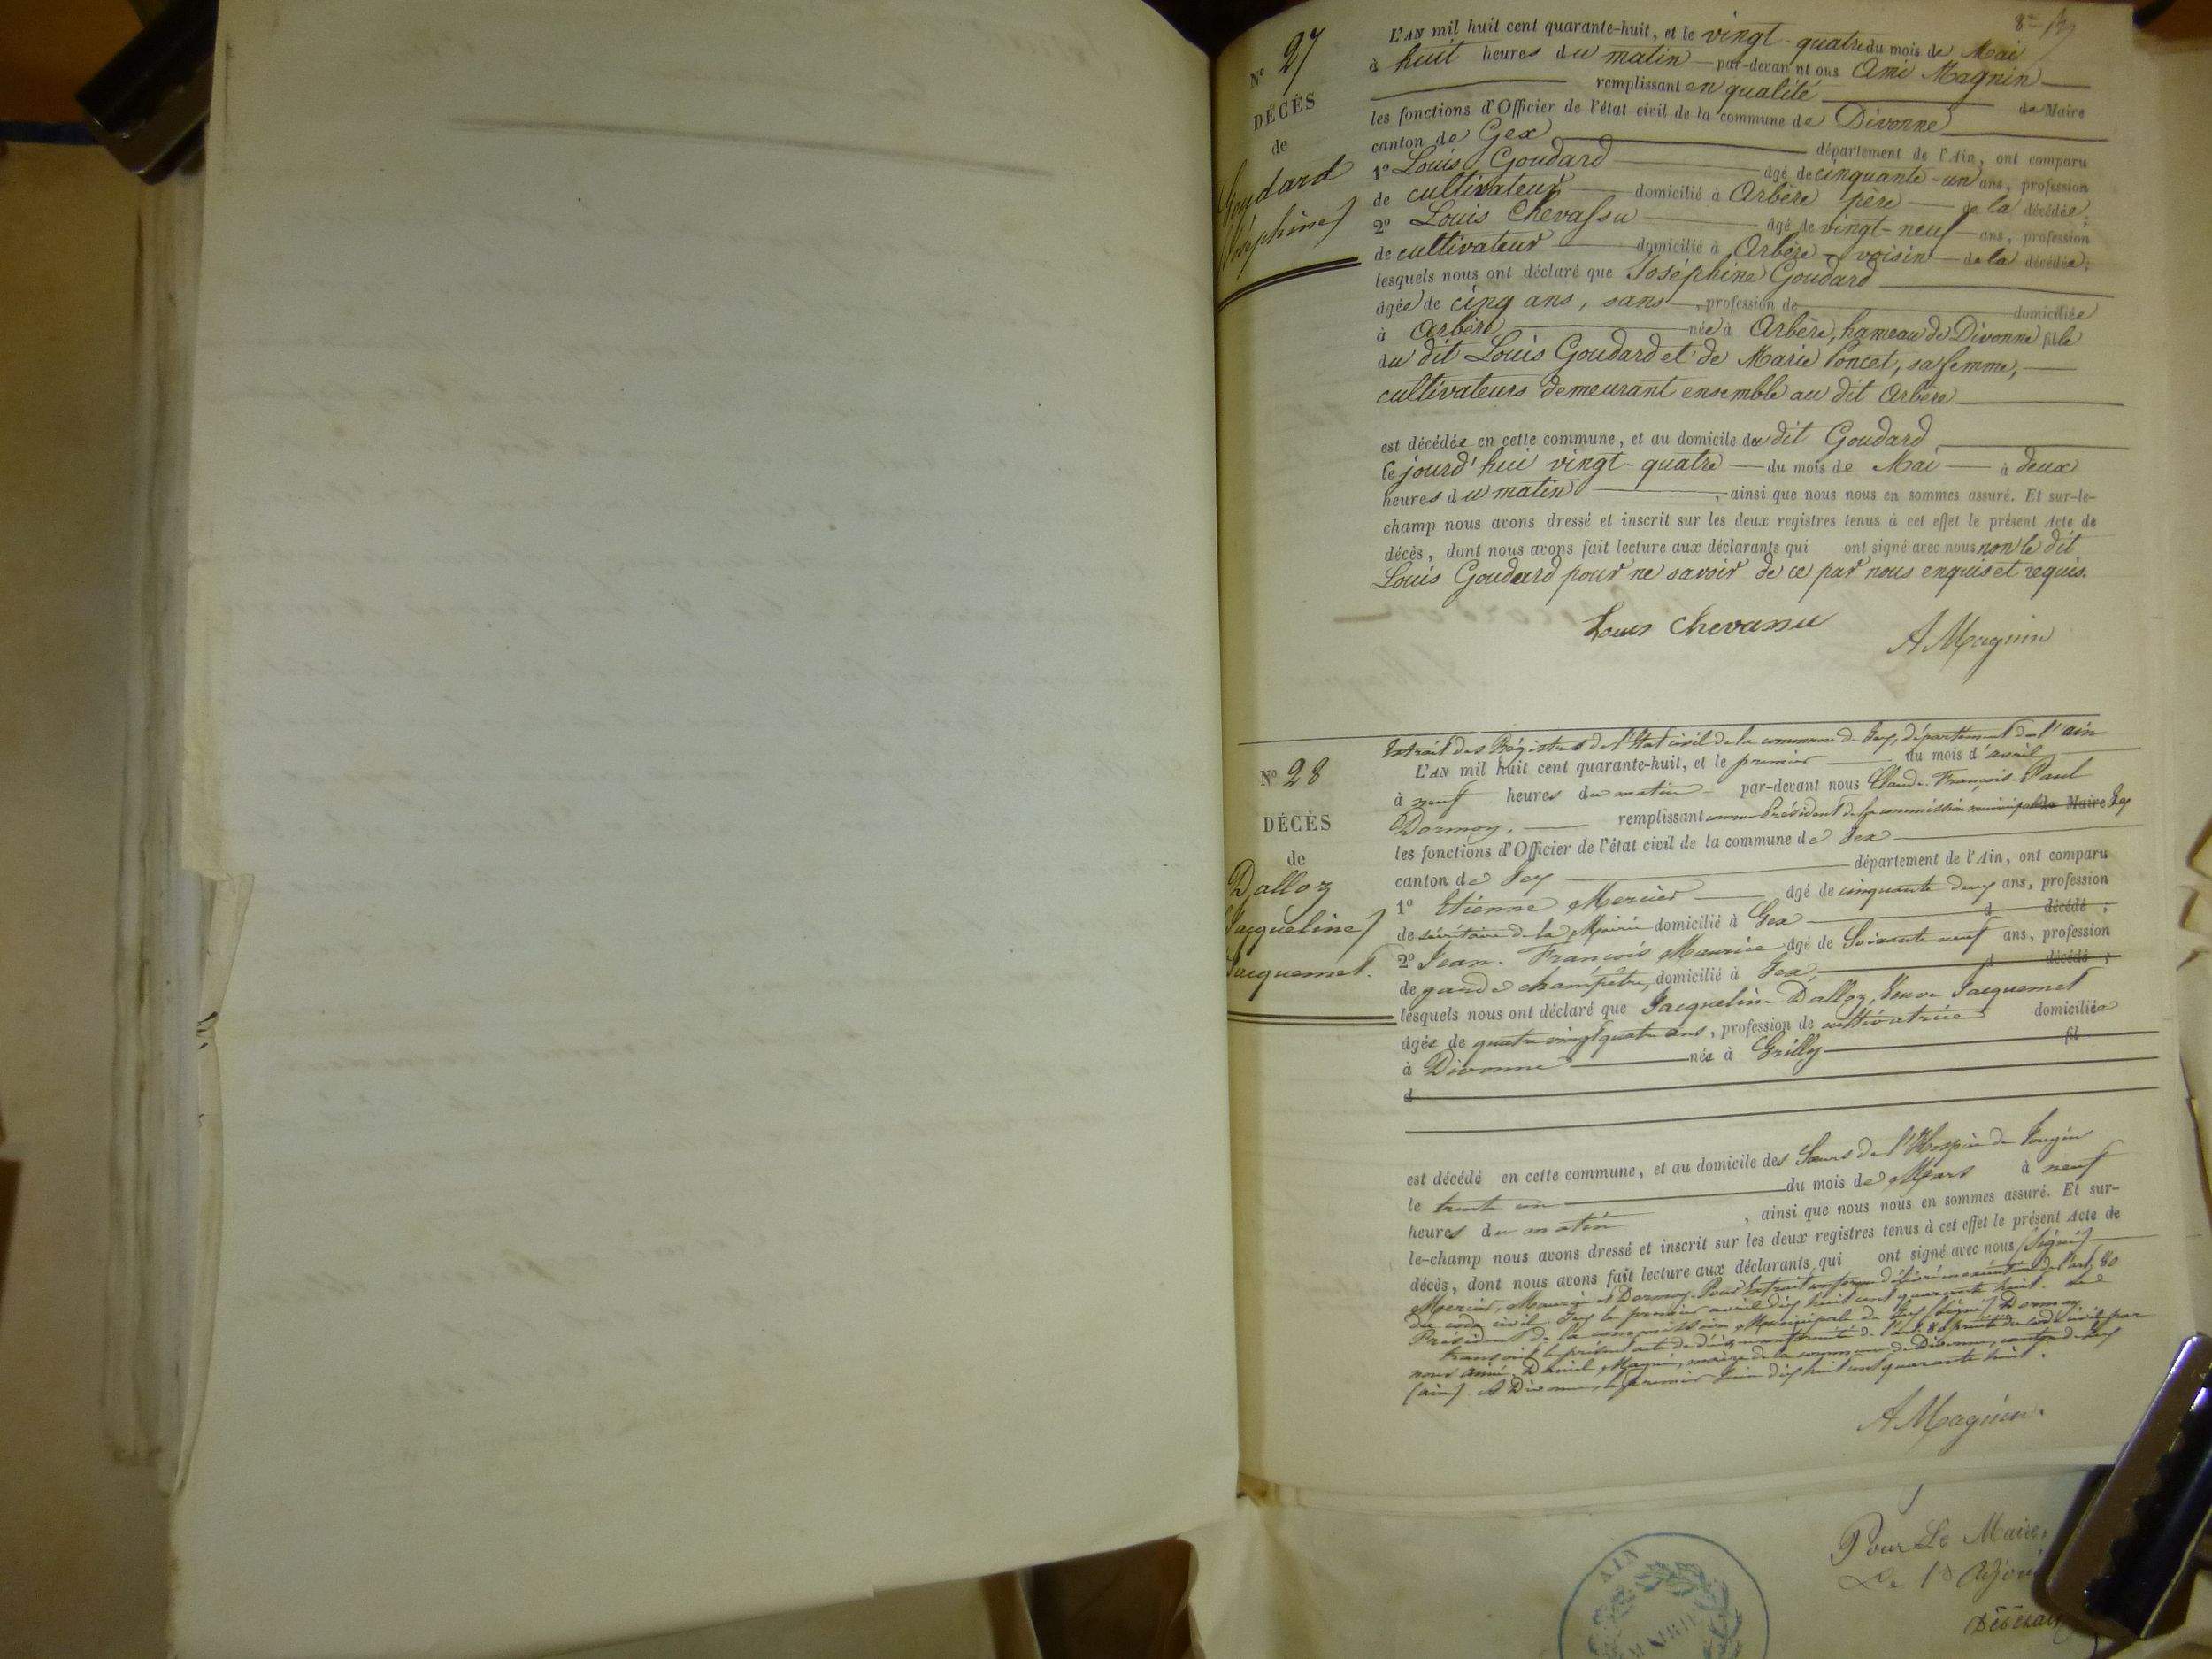 8e
L'AN mil huit cent quarante-huit, et le vingt-quatre du mois de Mai
à huit heures du matin par-devant nous Ami Magnin
remplissant en qualité de Maire
les fonctions d'Officier de l'état civil de la commune de Divonne
canton de Gex département de l'Ain, ont comparu
1º Louis Goudard âgé de cinquante-un ans, profession
de cultivateur domicilié à Arbère père de la décédée;
2º Louis Chevassu âgé de vingt-neuf ans, profession
de cultivateur domicilié à Arbère voisin de la décédée;
lesquels nous ont déclaré que Joséphine Goudard
âgée de cinq ans, sans, profession de domiciliée
à Arbère née à Arbère, hameau de Divonne fille
du dit Louis Goudard et de Marie Poncet, sa femme,
cultivateurs demeurant ensemble au dit Arbère
est décédée en cette commune, et au domicile du dit Goudard
le jourd'hui vingt-quatre du mois de Mai à deux
heures du matin, ainsi que nous nous en sommes assuré. Et sur-le-
champ nous avons dressé et inscrit sur les deux registres tenus à cet effet le présent Acte de
décès, dont nous avons fait lecture aux déclarants qui ont signé avec nous non le dit
Louis Goudard pour ne savoir de ce par nous enquis et requis.
Louis Chevassu
A Magnin
Nº 27
DÉCÈS
de
Goudard
Joséphine
Extrait des Régistres de l'Etat civil de la commune de Gex, département de l'ain
L'AN mil huit cent quarante-huit, et le premier du mois d'avril
à neuf heures du matin par-devant nous Claude-François-Paul
Dormoy, remplissant comme Président de la commission municipale de Maire Gex
les fonctions d'Officier de l'état civil de la commune de Gex
canton de Gex département de l'Ain, ont comparu
1º Etienne Mercier âgé de cinquante deux ans, profession
de sécrétaire de la Mairie domicilié à Gex d décédé ;
2º Jean-François Maurice âgé de Soixante neuf ans, profession
de garde champêtre, domicilié à Gex, d décédé ;
lesquels nous ont déclaré que Jacqueline Dalloz, Veuve Jacquemet
âgée de quatre vingt quatre ans, profession de cultivatrice domiciliée
à Divonne née à Grilly fil
d
est décédé en cette commune, et au domicile des Sœurs de l'Hospice de Tougin
le trente un du mois de Mars à neuf
heures du matin, ainsi que nous nous en sommes assuré. Et sur-
le-champ nous avons dressé et inscrit sur les deux registres tenus à cet effet le présent Acte de
décès, dont nous avons fait lecture aux déclarants qui ont signé avec nous (Signé)
Mercier, Maurice et Dormoy. Pour Extrait conforme délivré en exécution de l'art. 80
du code civil. Gex le premier avril dix huit cent quarante huit. Le
Président de la commission Municipale de Gex (Signé) Dormoy
transcrit le présent acte de décès, en conformité de l'art. 80 précité du code civil par
nous Ami Daniel Magnin, maire de la commune de Divonne, canton de Gex
(ain) A Divonne, le premier Juin dix huit cent quarante huit.
A Magnin.
Nº 28
DÉCÈS
de
Dalloz
Jacqueline
Jacquemet.
Pour Le Maire,
Le 1er Adjoi
AIN
MAIRIE